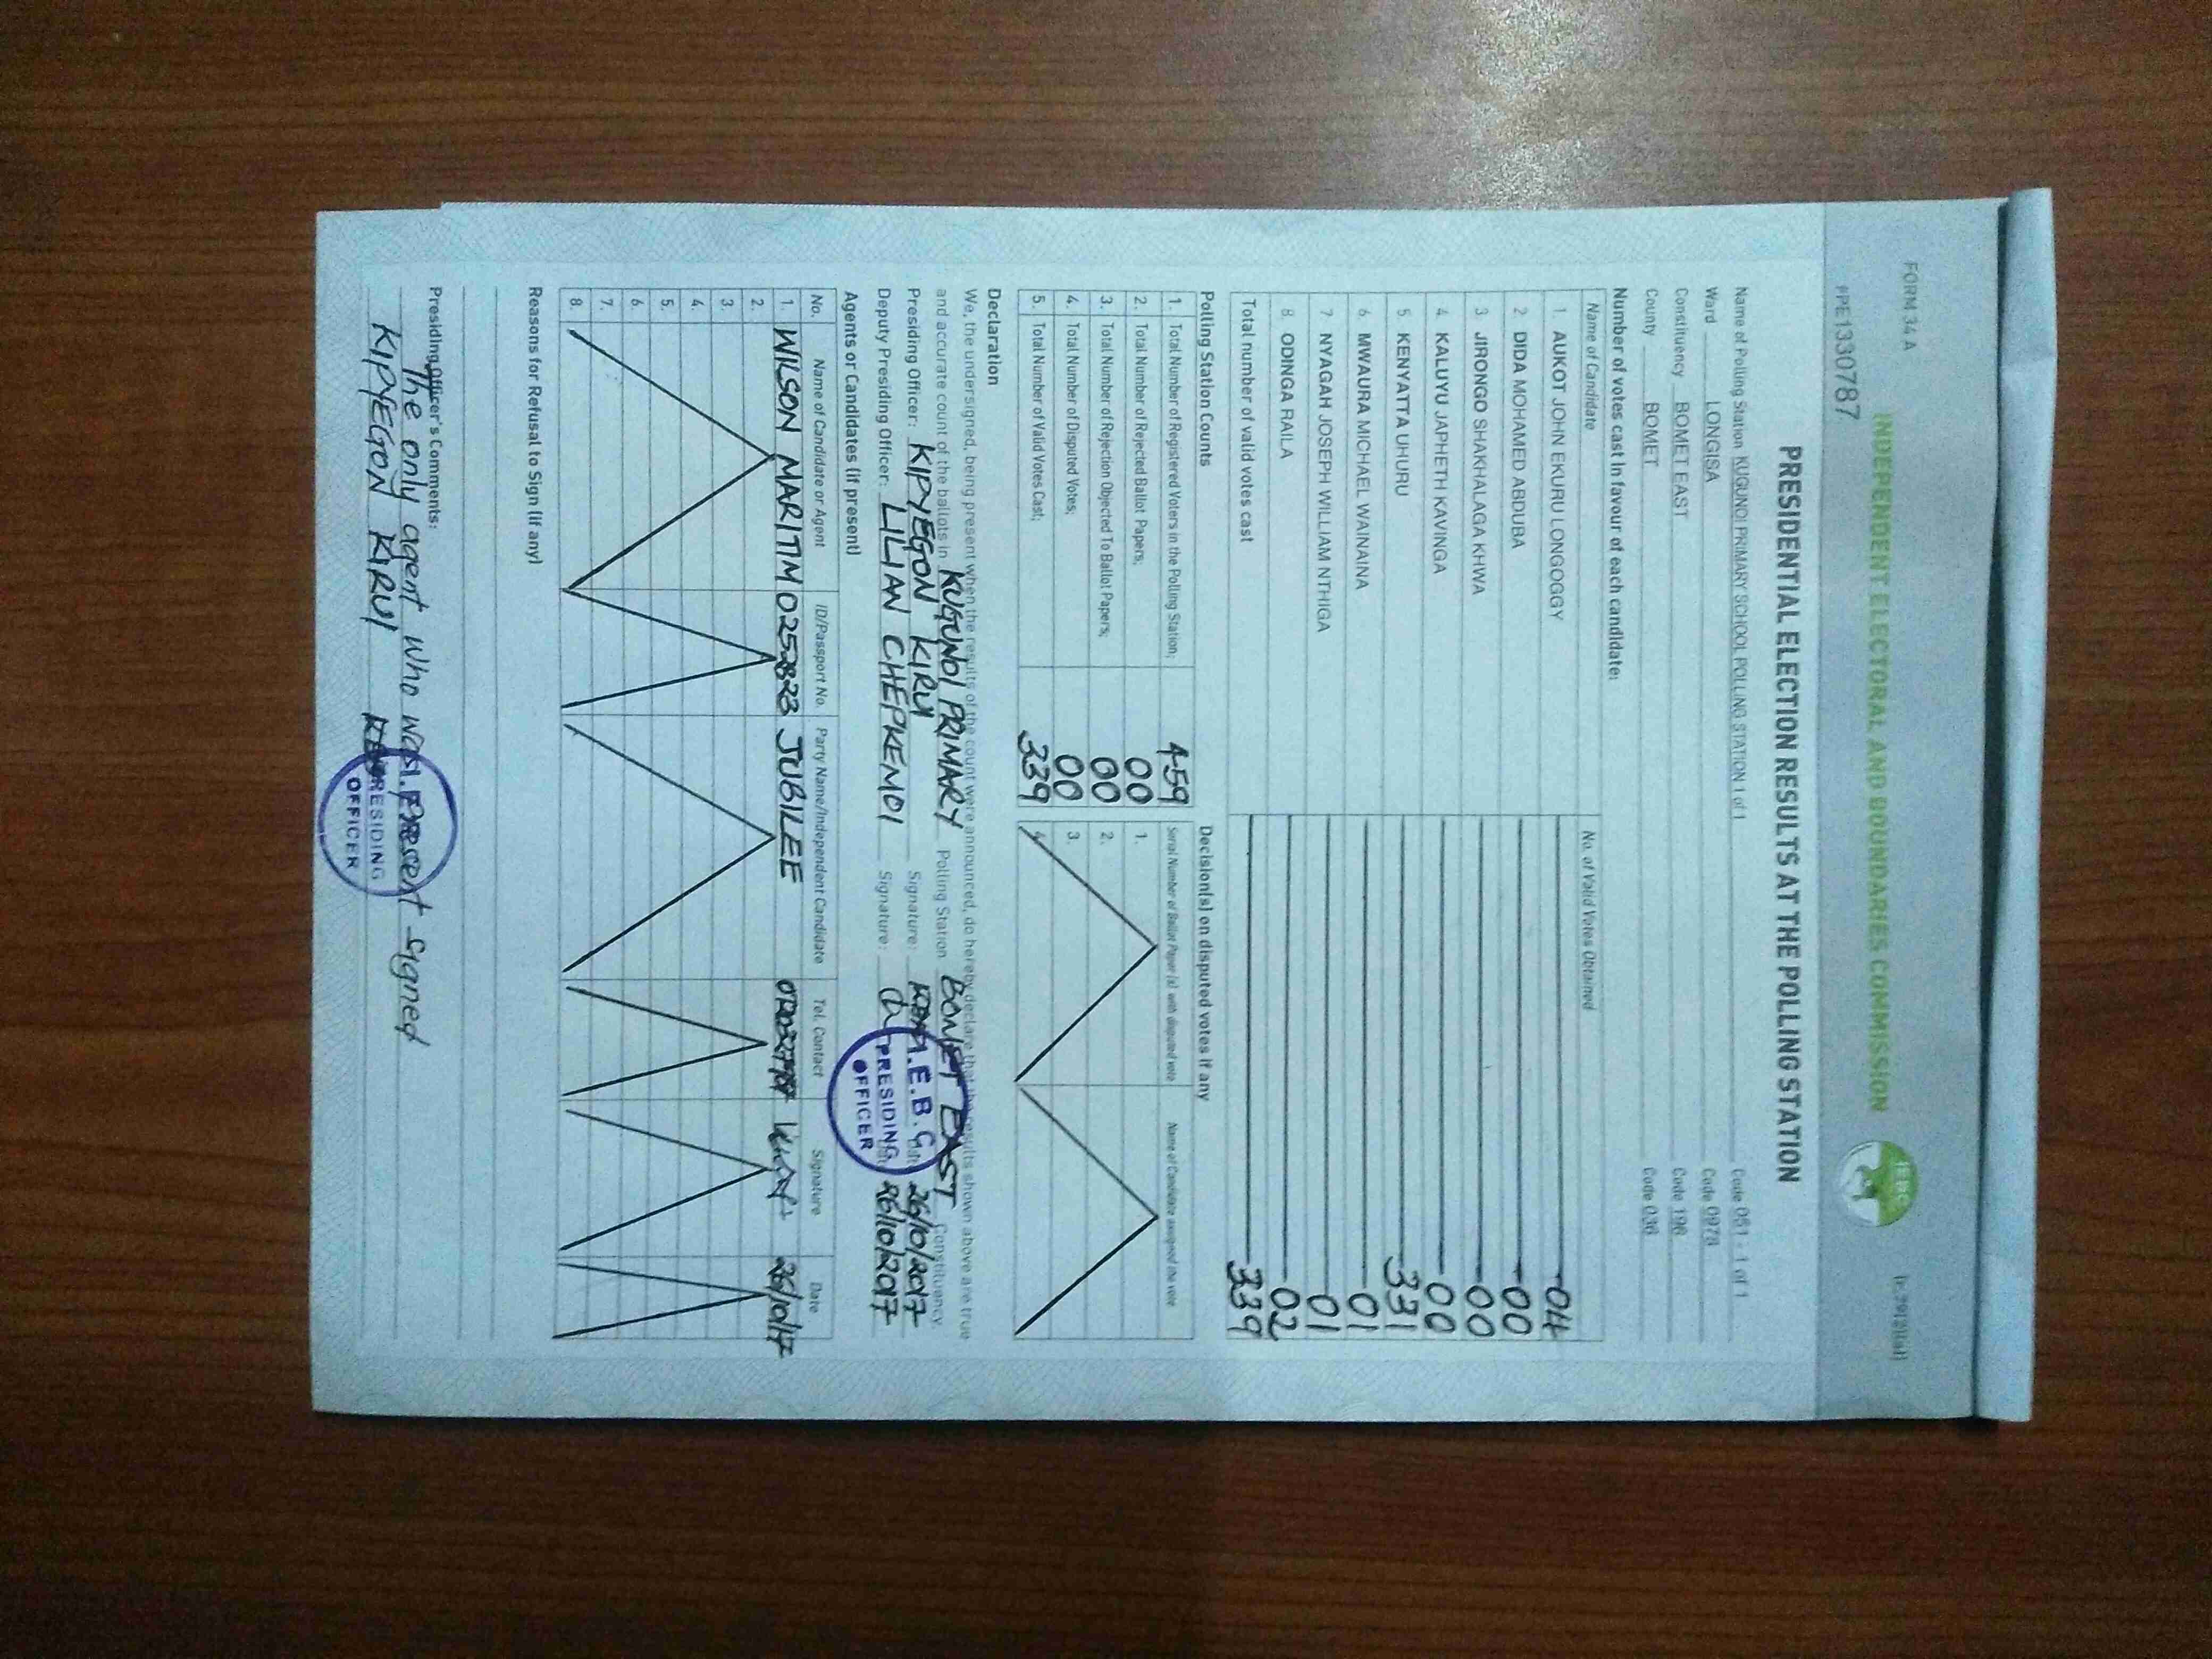 FORM 34 A
INDEPENDENT ELECTORAL AND BOUNDARIES COMMISSION
IEBC
PRESIDENTIAL ELECTION RESULTS AT THE POLLING STATION
Name of Polling Station KUGUNOI PRIMARY SCHOOL POLLING STATION 1 of 1 Code 051 - 1 of 1
Ward LONGISA Code 0978
Constituency BOMET EAST Code 196
County BOMET Code 036
Number of votes cast in favour of each candidate:
Name of Candidate No. of Valid Votes Obtained
1. AUKOT JOHN EKURU LONGOGGY 04
2 DIDA MOHAMED ABDUBA 00
3 JIRONGO SHAKHALAGA KHWA 00
4 KALUYU JAPHETH KAVINGA 00
5 KENYATTA UHURU 331
6 MWAURA MICHAEL WAINAINA 01
7 NYAGAH JOSEPH WILLIAM NTHIGA 01
8 ODINGA RAILA 02
Total number of valid votes cast 339
Polling Station Counts Decision(s) on disputed votes if any
1. Total Number of Registered Voters in the Polling Station; 459 Serial Number of Ballot Paper (s) with disputed vote Name of Candidate assigned the vote
2. Total Number of Rejected Ballot Papers; 00 1.
3. Total Number of Rejection Objected To Ballot Papers; 00 2.
4. Total Number of Disputed Votes; 00 3.
5. Total Number of Valid Votes Cast; 339
Declaration
We, the undersigned, being present when the results of the count were announced, do hereby declare that the results shown above are true
and accurate count of the ballots in KUGUNOI PRIMARY Polling Station BOMET EAST Constituency.
Presiding Officer: KIPYEGON KIRUI Signature: 26/10/2017
Deputy Presiding Officer: LILIAN CHEPKEMOI Signature: 26/10/2017
I.E.B.C
PRESIDING
OFFICER
Agents or Candidates (if present)
No. Name of Candidate or Agent ID/Passport No. Party Name/Independent Candidate Tel. Contact Signature Date
1. WILSON MARITIM 02528323 JUBILEE 26/10/17
2.
3.
4.
5.
6.
7.
8.
Reasons for Refusal to Sign (if any)
Presiding Officer's Comments:
The only agent who was present signed
KIPYEGON KIRUI
PRESIDING
OFFICER